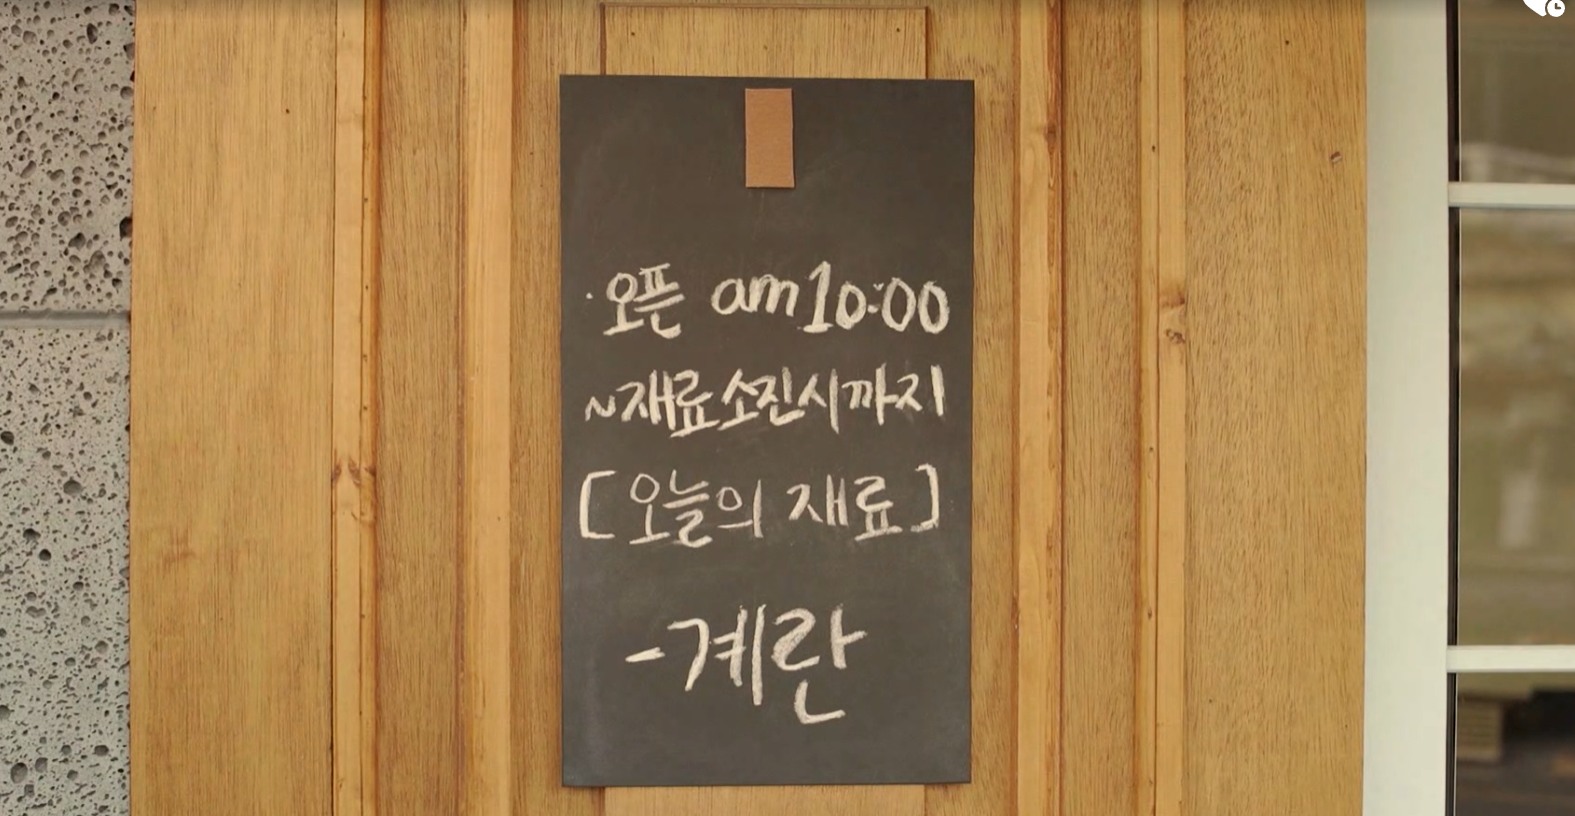 ·오픈 am10:00
~재료소진시까지
[오늘의 재료]
-계란